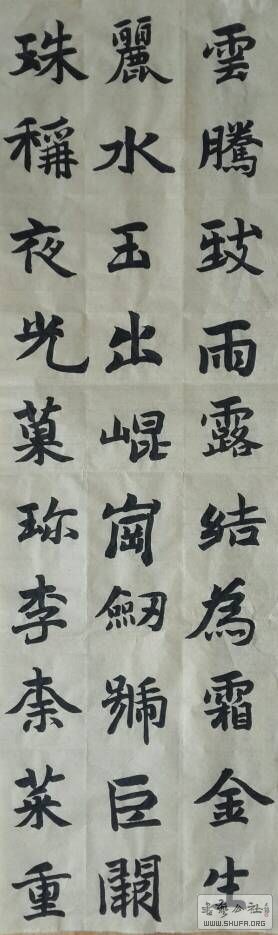 雲騰致雨露結為霜金生
麗水玉出崐崗劔號巨闕
珠稱夜光菓珍李柰菜重
WWW.SHUFR.ORG